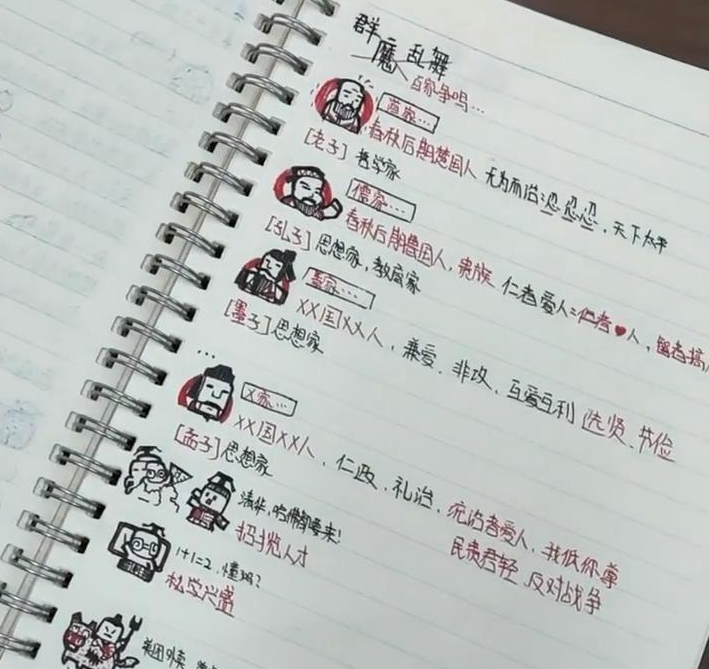 群魔乱舞
百家争鸣...
道家...
[老子] 春秋后期楚国人 无为而治:忍忍忍,天下太平
哲学家
儒家...
[孔子] 春秋后期鲁国人,贵族 仁者爱人:仁者♥人,
思想家,教育家
墨家...
[墨子] XX国XX人,兼爱、非攻、互爱互利 选贤、节俭
思想家
...
X家...
[孟子] XX国XX人,仁政、礼治,统治者爱人,我低你尊
思想家
民贵君轻 反对战争
清华,哈佛都要来!
招揽人才
1+1=2,懂吗?
私学兴盛
美团外卖